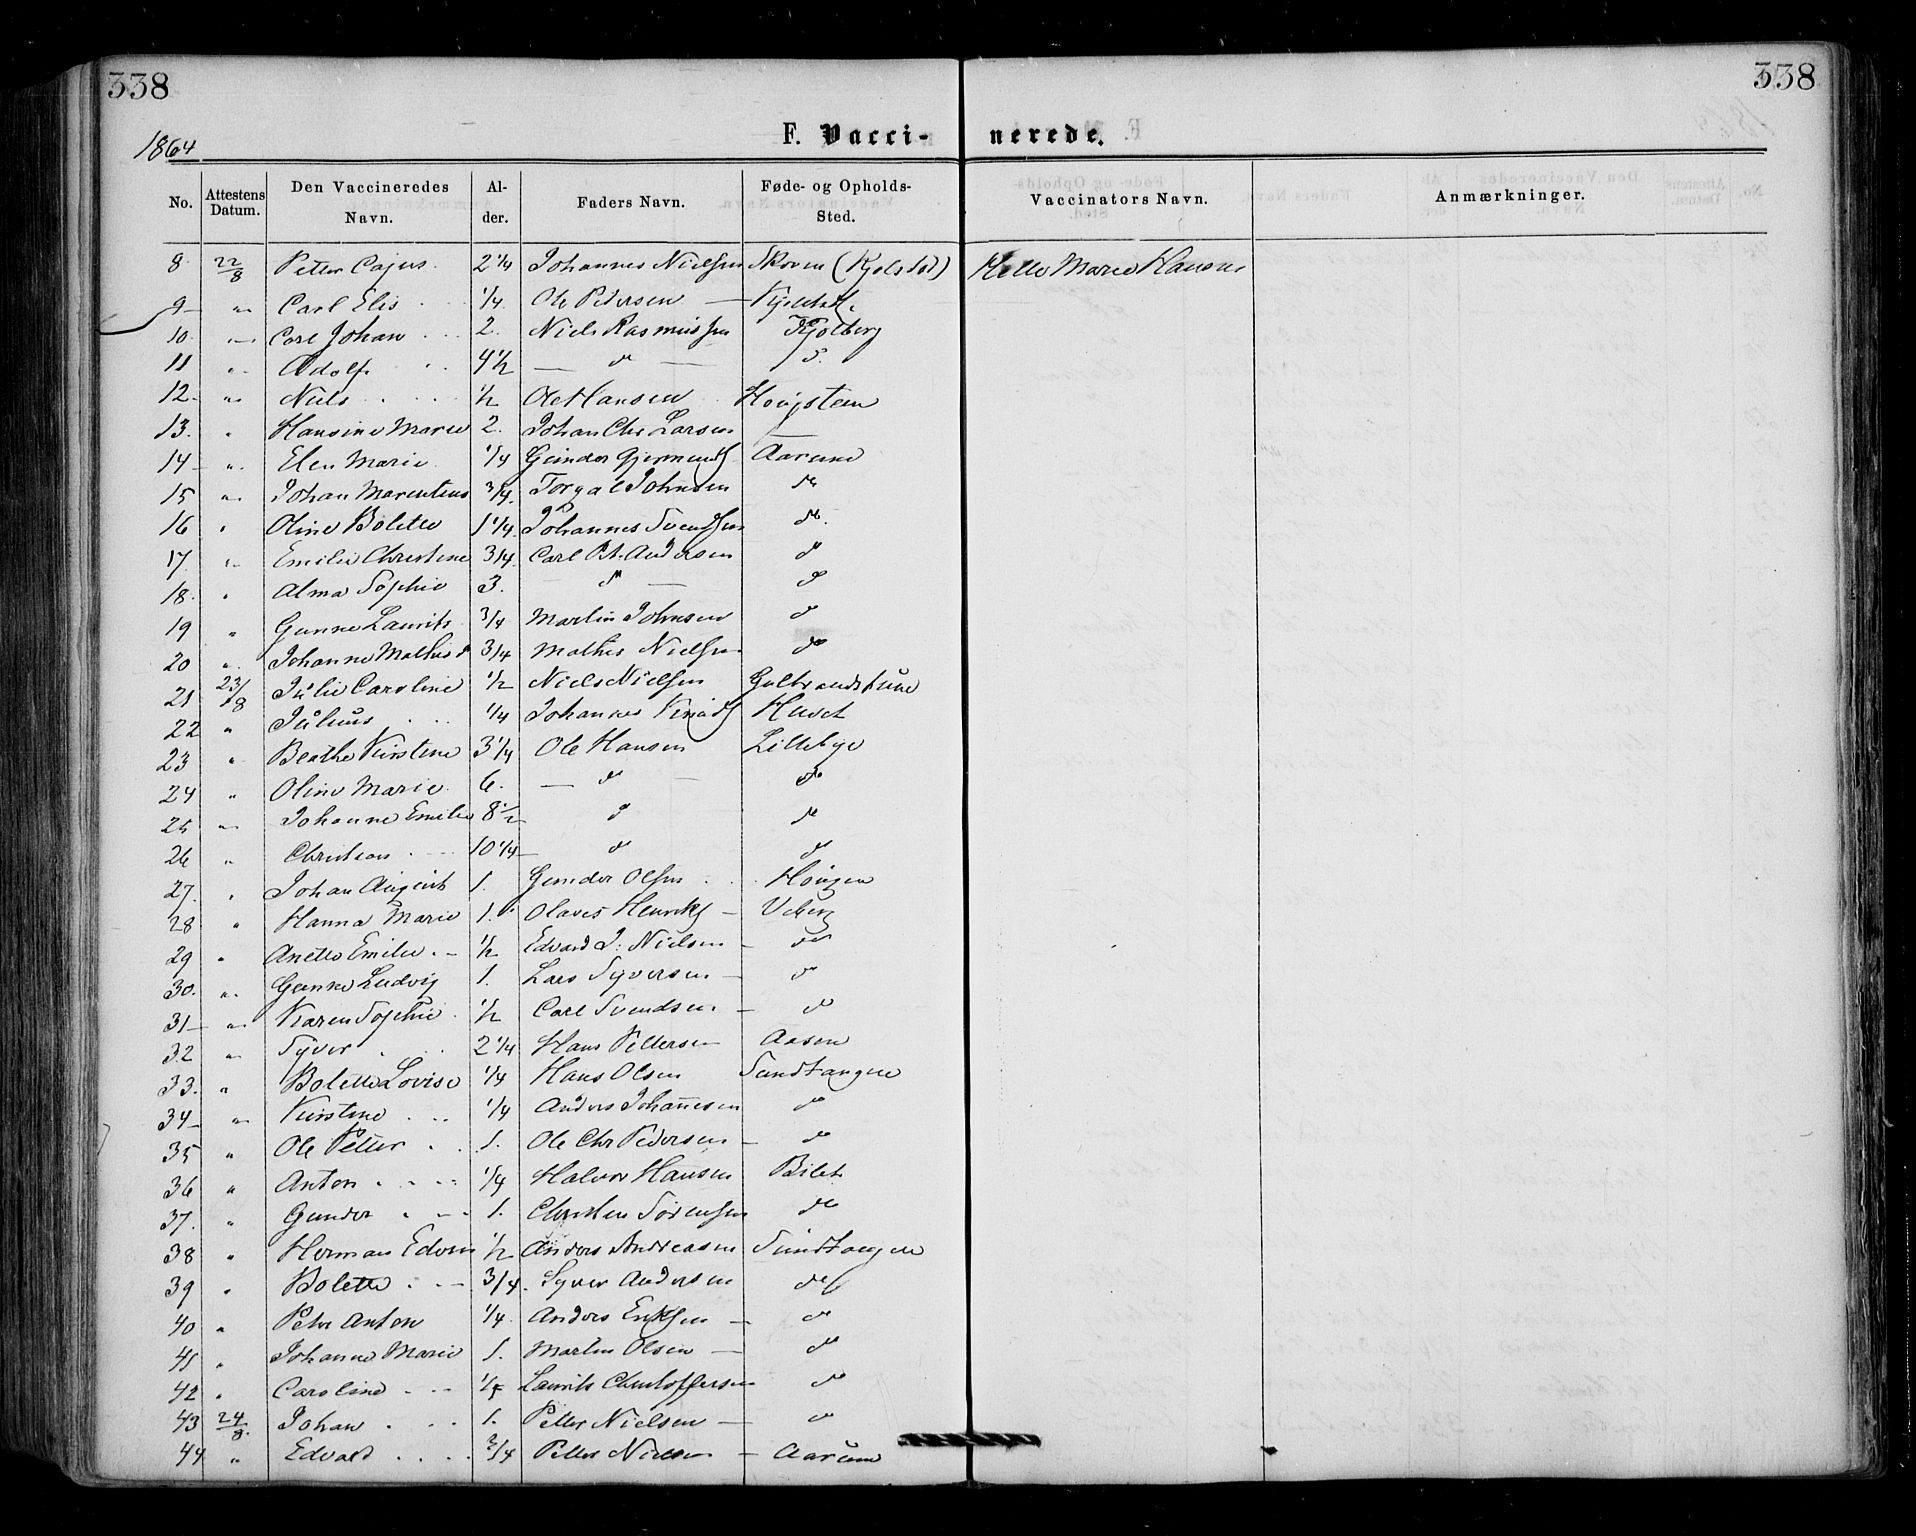 338 338
1864
F. Vacci- nerede.
No. Attestens Datum. Den Vaccineredes Navn. Al- der. Faders Navn. Føde- og Opholds- Sted. Vaccinators Navn. Anmærkninger.
8 22/8 Petter Cajus 2 1/4 Johannes Nielsen Skoven (Kjølstad) Mette Marie Hansen
9 " Carl Elis 1/4 Ole Pedersen
10 " Carl Johan 2. Niels Rasmussen Kjølberg
11 " Adolf 4 1/2 — d° — d°
12 " Niels 1/2 Ole Hansen
13. " Hansine Marie 2. Johan Chr Larsen —
14 " Elen Marie 1/4 Gunder Aarum
15 " Johan Marentius 3/4 Johnsen d°
16 " Oline Bolette 1 1/4 Johannes Svendsen d°
17 " Emilie Christine 3/4 Carl Pet. Andersen d°
18. " Alma Sophie 3. — d° — d°
19 " Gunne Laurits 3/4 Martin Johnsen d°
20 " Johanne Mathisd 3/4 Mathis Nielsen d°
21 23/8 Julie Caroline 1/2 Niels Nielsen
22 " Julius 1/4 Johannes Knuds
23 " Beathe Kirstine 3 1/4 Ole Hansen Lillebye
24 " Oline Marie 6. — d° — d°
25 " Johanne Emilie 8 1/2 d° d°
26 " Christian 10 1/4 d° d°
27. " Johan August 1. Gunder Olsen Hougen
28 " Hanna Marie 1. Olaves Henriks
29 " Anette Emilie 1/2 Edvard J. Nielsen d°
30. " Gunne Ludvig 1. Lars Syversen d°
31 " Karen Sophie 1/2 Carl Svendsen d°
32 " Syver 2 1/4 Hans Pettersen Aasen
33. " Bolette Lovise 1/4 Hans Olsen Sundtangen
34 " Kirstine 1/4 Anders Johannesen d°
35 " Ole Petter 1. Ole Chr Pedersen d°
36 " Anton 1/4 Halvor Hansen Bilet
37. " Gunder 1. Christen Sørensen d°
38 " Herman Edvin 1/2 Anders Andreasen Sundtangen
39 " Bolette 3/4 Syver Andersen d°
40 " Petr Anton 1/4 Anders Eriksen d°
41 " Johanne Marie 1. Martin Olsen d°
42 " Caroline Laurits Christoffersen d°
43 24/8 Johan 1. Petter Nielsen d°
44 " Edvard 3/4 Petter Nielsen Aarum